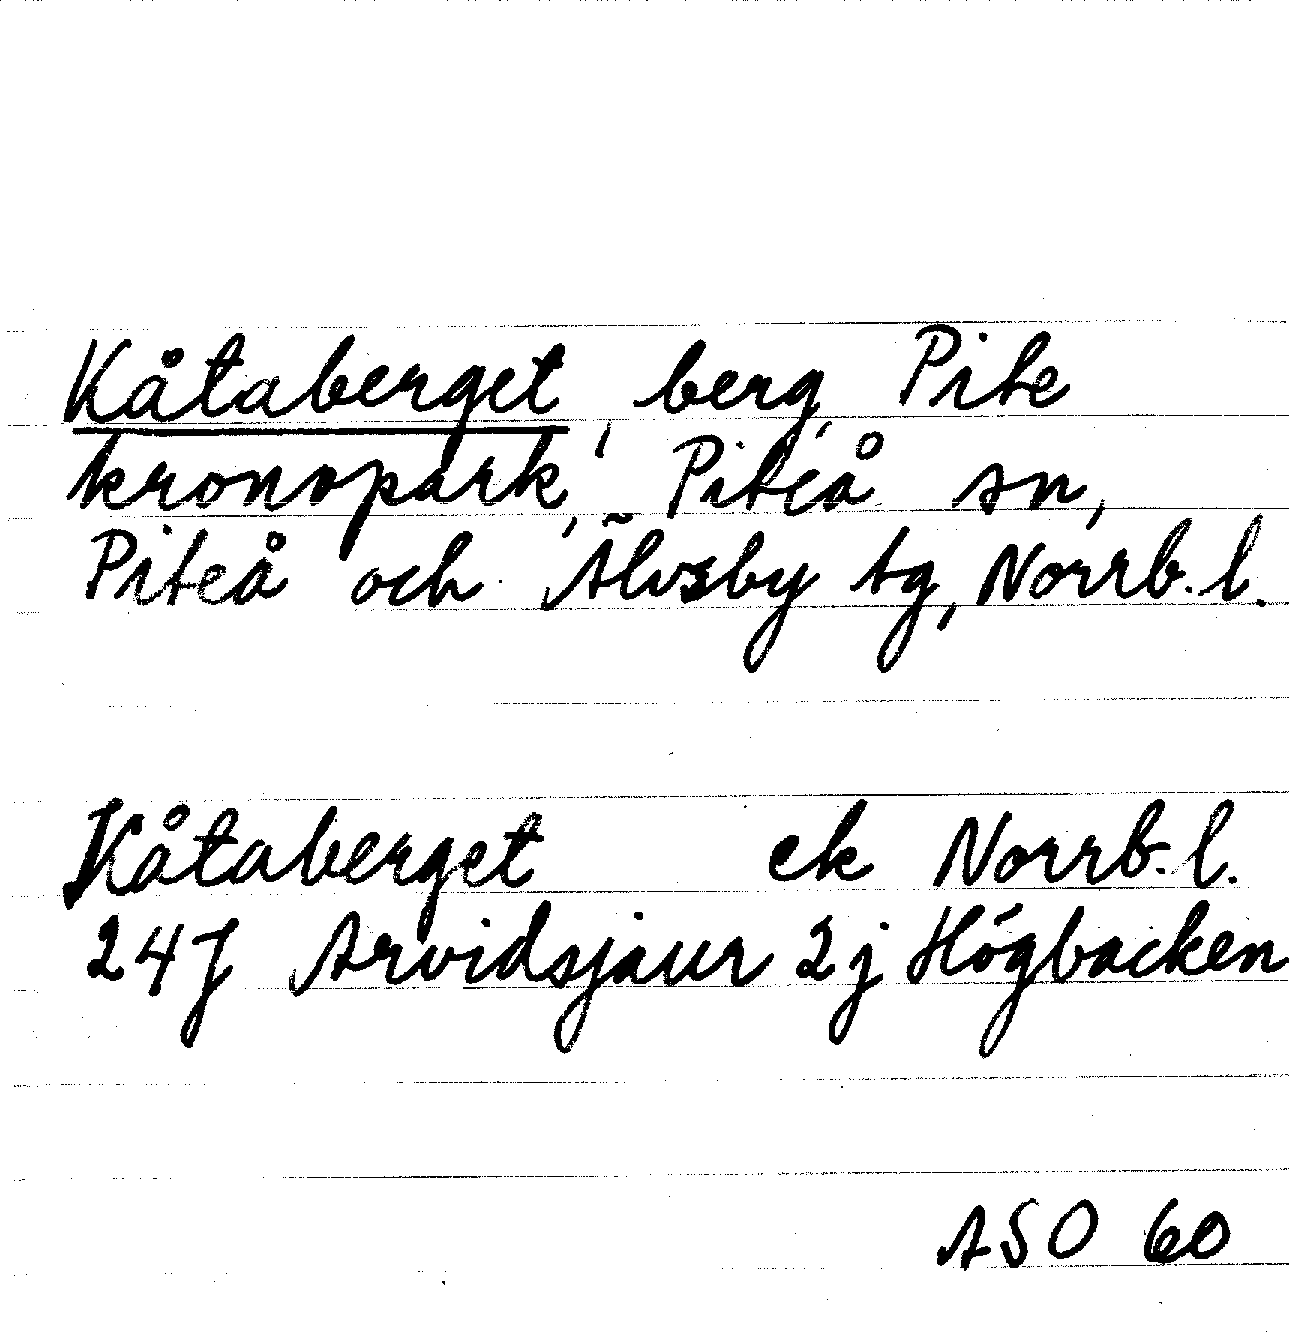 Kåtaberget, berg, Pite
kronopark, Piteå sn,
Piteå och Älvsby tg, Norrb. l.
Kåtaberget ek Norrb. l.
24J Arvidsjaur 2j Högbacken
ASO 60